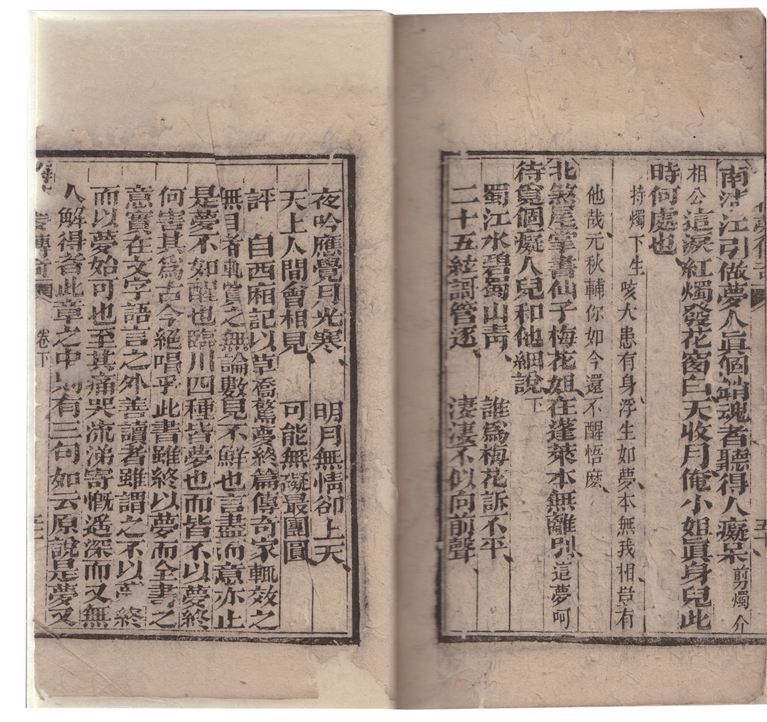 南 江引做夢人眞個銷魂者聽得人癡呆 剪燭介
相公這淚紅燭發花窗白天收月俺小姐眞身兒此
時何處也
持燭下生 咳大患有身浮生如夢本無我相豈有
他哉元秋輔你如今還不醒悟麽
北煞尾掌書仙子梅花姐在蓬萊本無離別這夢呵
待覓個癡人兒和他細說下
蜀江水碧蜀山靑 誰爲梅花訴不平
二十五絃調管逐 淒淒不似向前聲
五十
夜吟應覺月光寒 明月無情卻上天
天上人間會相見 可能無礙最團圓
評 自西廂記以草橋驚夢終篇傳奇家輒效之
無目者軌賞之無論數見不鮮也言盡而意亦止
是夢不如醒也臨川四種皆夢也而皆不以夢終
何害其爲古今絕唱乎此書雖終以夢而全書之
意實在文字語言之外善讀者雖謂之不以夢終
而以夢始可也至其痛哭流涕寄慨遥深而又無
人解得者此章之中則有三句如云原說是夢又
傳奇 卷下